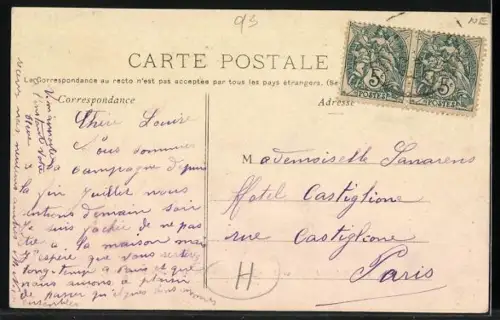 93
NE
CARTE POSTALE
La Correspondance au recto n'est pas acceptée par tous les pays étrangers. (Se
Correspondance
Adresse
5
POSTES
5
POSTES
Chère Louise
Nous sommes
à la campagne depuis
la fin Juillet nous
rentrons demain soir
je suis fachée de ne pas
être à la maison mais
j'espère que vous serez
longtemps a Paris et que
nous aurons le plaisir
de passer quelques
ensembles
Mademoiselle
Hotel Castiglione
rue Castiglione
Paris
H